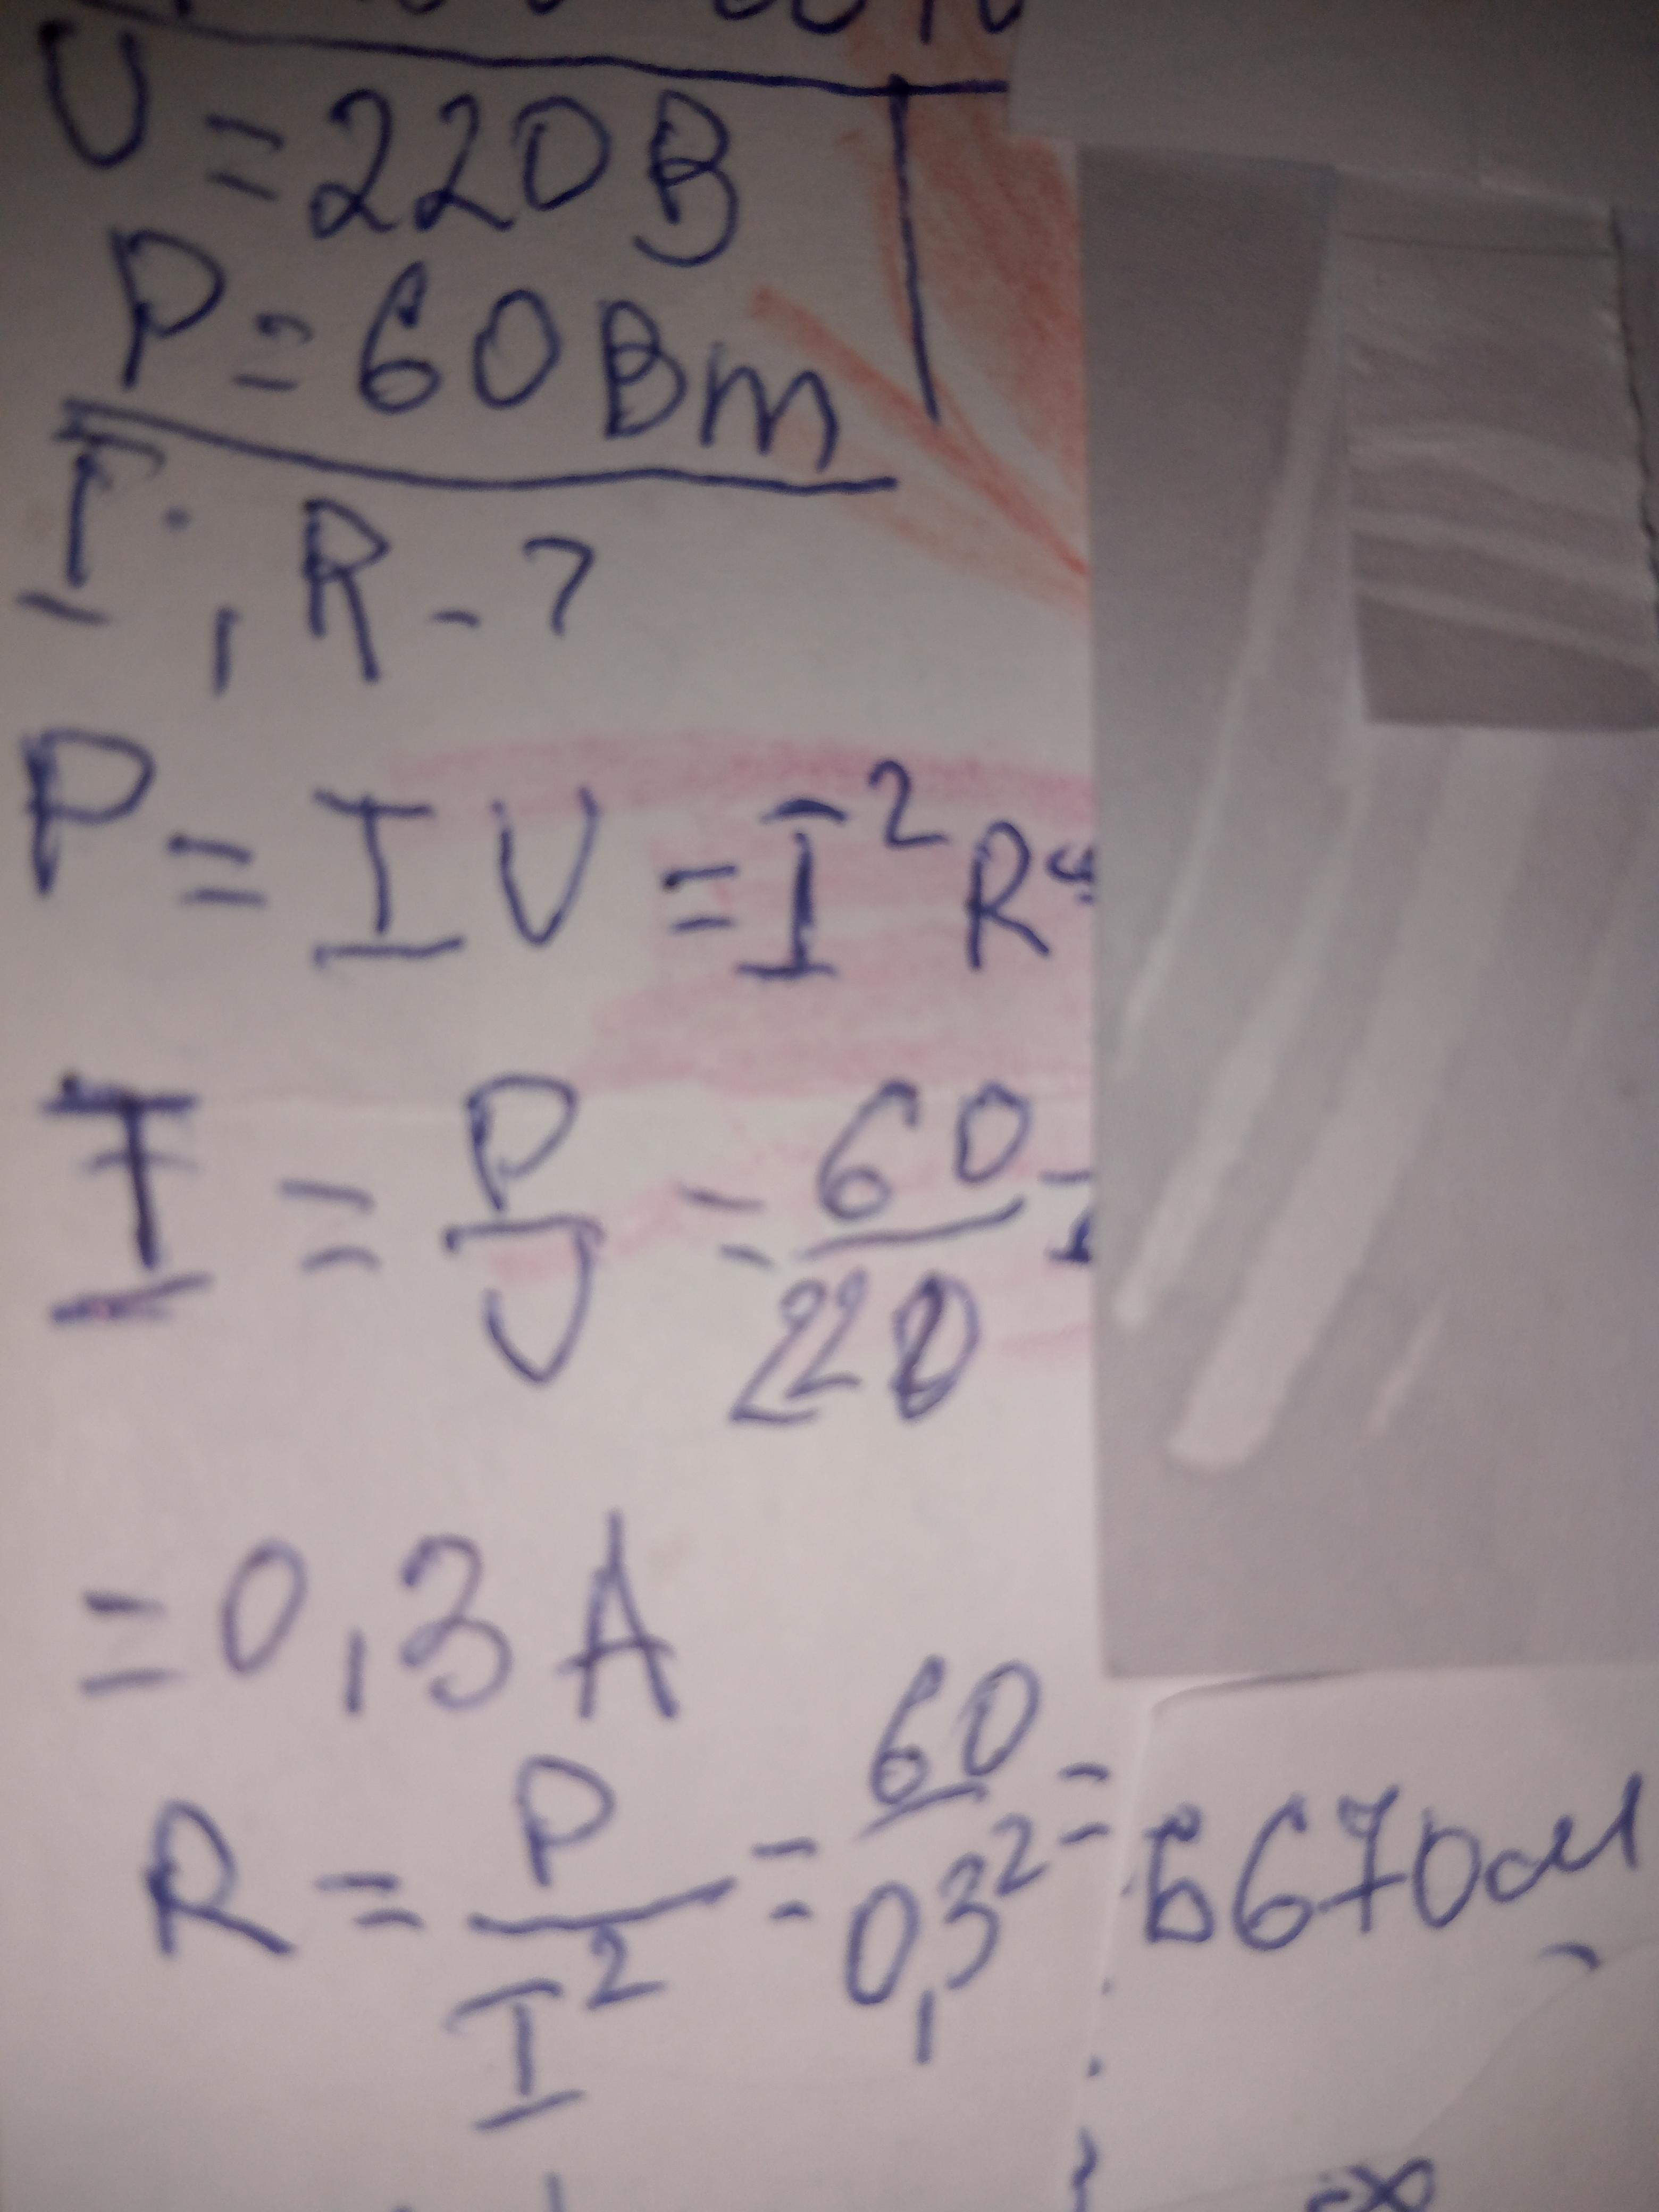 U = 220 В
P = 60 Вт
I, R - ?
P = I U = I² R
I = P/U = 60/220 =
= 0,3 А
R = P/I² = 60/0,3² = 667 Ом